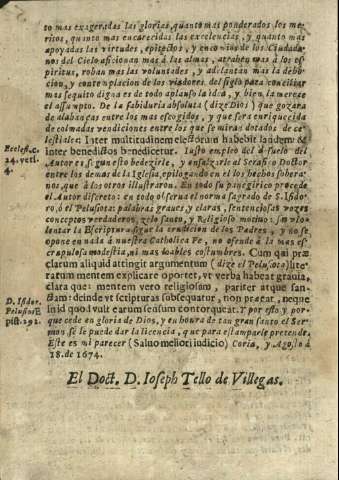 to mas exageradas las glorias, quanto mas ponderados los me-
ritos, quanto mas encarecidas las excelencias, y quanto mas
apoyadas las virtudes, epitectos, y encomios de los Ciudada-
nos del Cielo aficionan mas à las almas, atrahen mas à los es-
piritus, roban mas las voluntades, y adelantan mas la debo-
cion, y contemplacion de los viadores del siglo para conciliar
mas sequito digna es de todo aplauso la idea, y bien la merece
el assumpto. De la sabiduria absoluta (dize Dios) que gozara
de alabanças entre los mas escogidos, y que sera enriquecida
de colmadas vendiciones entre los que se miran dotados de ce-
lestiales: Inter multitudinem electorum habebit laudem &
inter benedictos benedicetur. Iusto empleo del desvelo del
Autor es, segun esto bedezirle, y ensalzarle al Serafico Doctor
entre los demas de la Iglesia, epilogando en el los hechos sobera-
nos, que à los otros illustraron. En todo su panegirico procede
el Autor discreto: en todo observa el norma sagrado de S. Isido-
ro, ò el Pelusota: palabras graues, y claras, sentenciosas vozes
conceptos verdaderos, zelo santo, y Religioso motiuo: sin vio-
lentar la Escriptura sigue la erudicion de los Padres, y no se
opone en nada à nuestra Catholica Fe, no ofende à la mas es-
crupulosa modestia, ni mas loables costumbres. Cum qui præ
clarum aliquid attingit argumentum (dize el Pelusota) lite-
ratum mentem explicare oportet, vt verba habeat grauia,
clara que: mentem vero religiosam, pariter atque san-
ctam: deinde vt scripturas subsequatur, non præeat, neque
inid quod vult earum sensum contorqueat. Y por esto y por-
que cede en gloria de Dios, y en honra de tan gran santo el Ser-
mon se le puede dar la licencia, que para estamparle pretende.
Este es mi parecer (Saluo meliori iudicio) Coria, y Agosto à
18. de 1674.
Eccles. c.
24. vers.
4.
D. Isidor.
Pelusiot
Epist. 292.
El Doct. D. Ioseph Tello de Villegas.